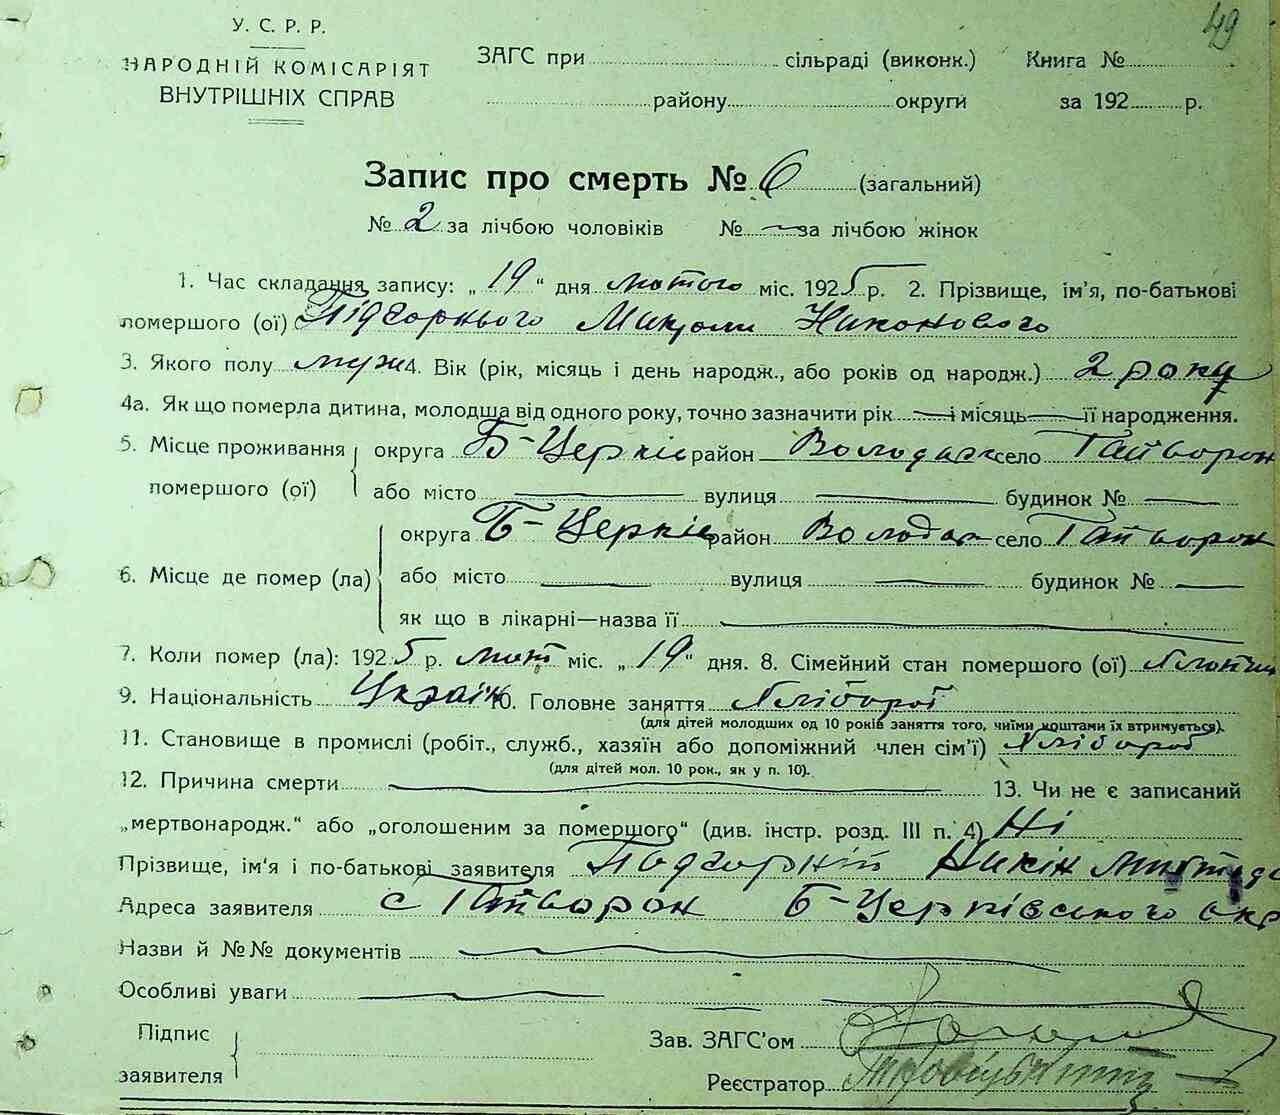 49
У. С. Р. Р.
НАРОДНІЙ КОМІСАРІЯТ
ВНУТРІШНІХ СПРАВ
ЗАГС при сільраді (виконк.) Книга №
району округи за 192 р.
Запис про смерть № 6 (загальний)
№ 2 за лічбою чоловіків № — за лічбою жінок
1. Час складання запису: „19" дня лютого міс. 1925 р. 2. Прізвище, ім'я, по-батькові
помершого (ої) Підгорнього Миколи Никонового
3. Якого полу муж 4. Вік (рік, місяць і день народж., або років од народж.) 2 року
4а. Як що померла дитина, молодша від одного року, точно зазначити рік — і місяць — її народження.
5. Місце проживання помершого (ої) округа Б-Церків район Володар село Гайворон
або місто — вулиця — будинок № —
6. Місце де помер (ла) округа Б-Церків район Володар село Гайворон
або місто — вулиця — будинок № —
як що в лікарні—назва її —
7. Коли помер (ла): 1925 р. лют міс. „19" дня. 8. Сімейний стан помершого (ої)
9. Національність Україн 10. Головне заняття Хлібороб
(для дітей молодших од 10 років заняття того, чиїми коштами їх втримується).
11. Становище в промислі (робіт., служб., хазяїн або допоміжний член сім'ї) Хлібороб
(для дітей мол. 10 рок., як у п. 10).
12. Причина смерти — 13. Чи не є записаний
„мертвонародж." або „оголошеним за помершого" (див. інстр. розд. III п. 4) Ні
Прізвище, ім'я і по-батькові заявителя Подгорній Никін
Адреса заявителя с Гайворон Б-Церківського окр
Назви й №№ документів —
Особливі уваги —
Підпис заявителя
Зав. ЗАГС'ом
Реєстратор